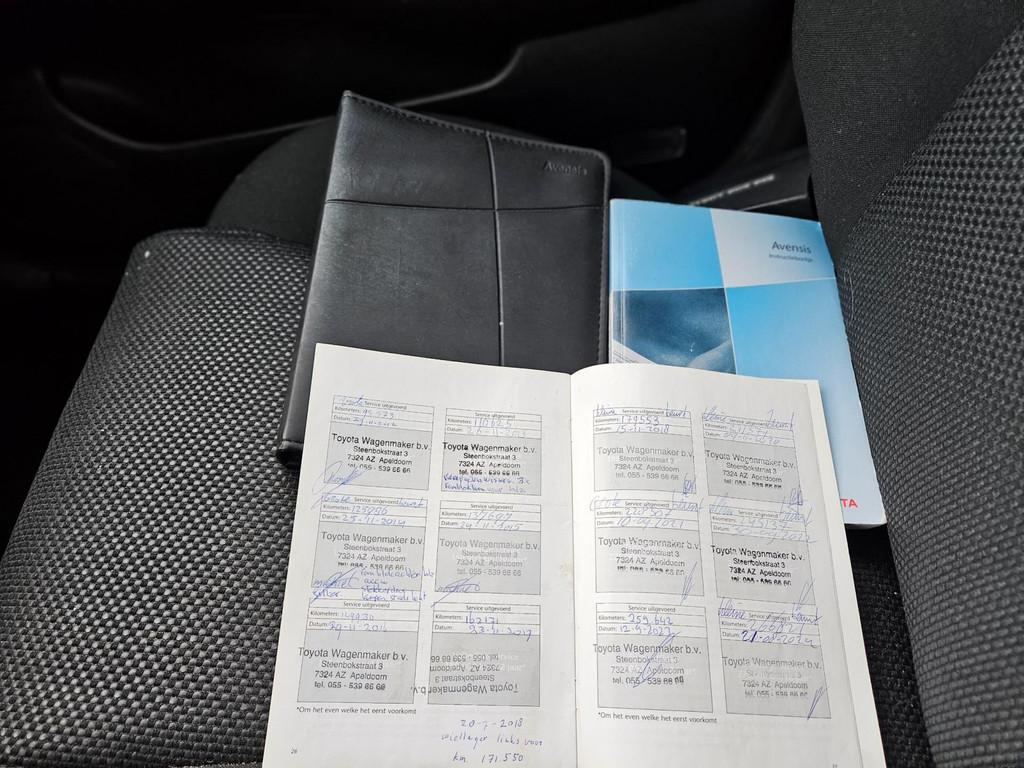 Avensis
Avensis
Instructieboekje
TA
Service uitgevoerd
Kilometers: 95.573
Datum:
Toyota Wagenmaker b.v.
Steenbokstraat 3
7324 AZ Apeldoorn
tel. 055 - 539 66 66
Service uitgevoerd
Kilometers: 110625
Datum:
Toyota Wagenmaker b.v.
Steenbokstraat 3
7324 AZ Apeldoorn
tel. 055 - 539 66 66
Grote Service uitgevoerd beurt
Kilometers: 125086
Datum: 25-11-2014
Toyota Wagenmaker b.v.
Steenbokstraat 3
7324 AZ Apeldoorn
tel. 055 - 539 66 66
accu
Service uitgevoerd
Kilometers: 137607
Datum: 24-11-2015
Toyota Wagenmaker b.v.
Steenbokstraat 3
7324 AZ Apeldoorn
tel. 055 - 539 66 66
Service uitgevoerd
Kilometers: 149930
Datum: 29-11-2016
Toyota Wagenmaker b.v.
Steenbokstraat 3
7324 AZ Apeldoorn
tel. 055 - 539 66 66
Service uitgevoerd
Kilometers: 162171
Datum: 23-11-2017
Toyota Wagenmaker b.v.
Steenbokstraat 3
7324 AZ Apeldoorn
tel. 055 - 539 66 66
*Om het even welke het eerst voorkomt
20-7-2018
wiellager links voor
km 171.550
26
kleine Service uitgevoerd beurt
Kilometers: 179553
Datum: 15-11-2018
Toyota Wagenmaker b.v.
Steenbokstraat 3
7324 AZ Apeldoorn
tel. 055 - 539 66 66
Kilometers:
Datum:
Toyota Wagenmaker b.v.
Steenbokstraat 3
7324 AZ Apeldoorn
tel. 055 - 539 66 66
Service uitgevoerd
Kilometers: 220507
Datum:
Toyota Wagenmaker b.v.
Steenbokstraat 3
7324 AZ Apeldoorn
tel. 055 - 539 66 66
Kilometers:
Datum:
Toyota Wagenmaker b.v.
Steenbokstraat 3
7324 AZ Apeldoorn
tel. 055 - 539 66 66
Service uitgevoerd
Kilometers: 259.642
Datum: 12-9-2023
Toyota Wagenmaker b.v.
Steenbokstraat 3
7324 AZ Apeldoorn
tel. 055 - 539 66 66
kleine Service uitgevoerd beurt
Kilometers:
Datum: 21-08-2024
Toyota Wagenmaker b.v.
Steenbokstraat 3
7324 AZ Apeldoorn
tel. 055 - 539 66 66
*Om het even welke het eerst voorkomt